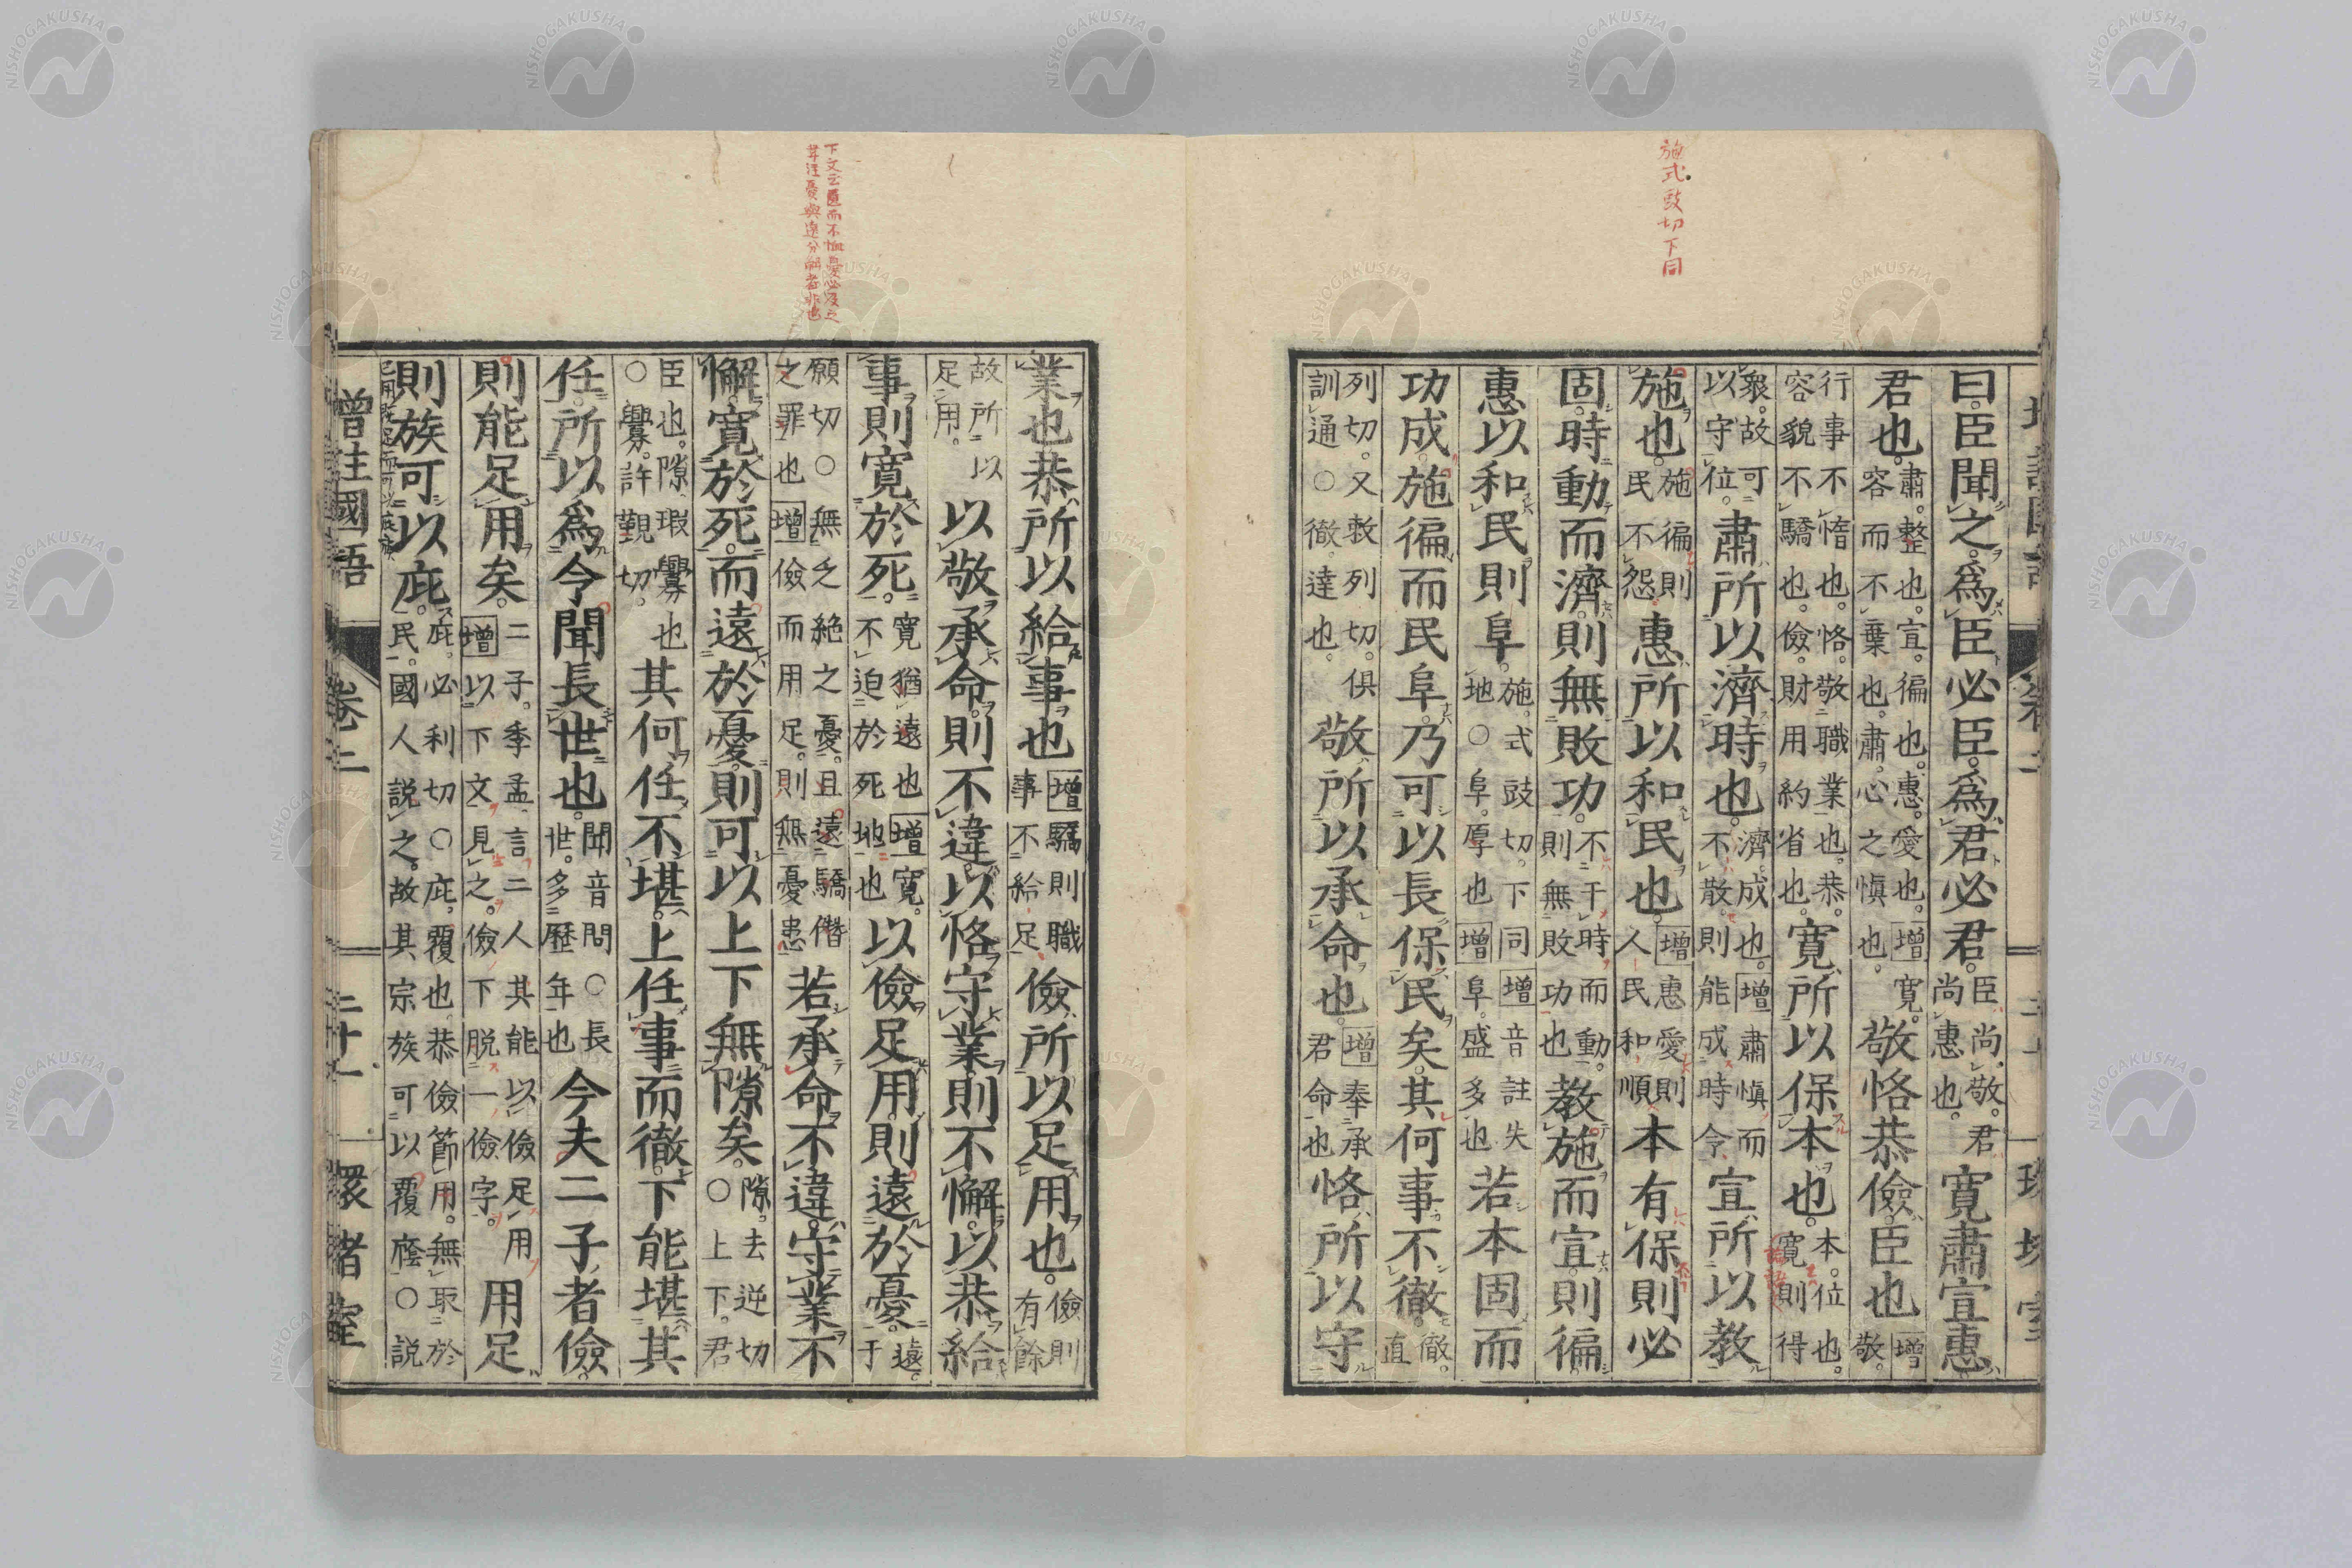 施式豉切下同
曰。臣聞之。爲臣必臣。爲君必君。臣尚敬。君尚惠也。寬肅宣惠
君也。肅。整也。宣。徧也。惠。愛也。增寬。容而不棄也。肅。心之慎也。敬恪恭儉。臣也增敬。
行事不惰也。恪。敬職業也。恭。容貌不驕也。儉。財用約省也。寬所以保本也。本。位也。寬則得
衆。故可以守位。肅所以濟時也。濟。成也。增肅慎而不散。則能成時令宣所以教
施也。施徧則民不怨惠所以和民也。增惠愛則人民和順本有保則必
固。時動而濟。則無敗功。不干時而動。則無敗功也教施而宣。則徧
惠以和民則阜。施。式豉切。下同增音註失地〇阜。厚也增阜。盛多也若本固而
功成。施徧而民阜。乃可以長保民矣。其何事不徹。徹。直
列切。又敕列切。俱訓通〇徹。達也。敬所以承命也。增奉承君命也恪所以守
業也恭所以給事也增驕則職事不給足儉所以足用也。儉則有餘
故所以足用。以敬承命。則不違。以恪守業。則不懈。以恭給
事。則寬於死。寬猶遠也增寬。不迫於死地也以儉足用。則遠於憂。遠。于
願切〇無乏絶之憂。且遠驕僭之罪也增儉而用足。則無憂患若承命不違。守業不
懈。寬於死。而遠於憂。則可以上下無隙矣。隙。去逆切〇上下。君
臣也。隙。瑕釁也〇釁。許覲切。其何任不堪。上任事而徹。下能堪其
任。所以爲令聞長世也。聞音問〇長世。多歷年也今夫二子者儉。
則能足用矣。二子。季孟。言二人其能以儉足用增以下文見之。儉下脱一儉字。用足
則族可以庇。庇。必利切〇庇。覆也。恭儉節用。無取於民。國人說之。故其宗族可以覆廕〇説
增注國語 卷二 二十一 環堵室